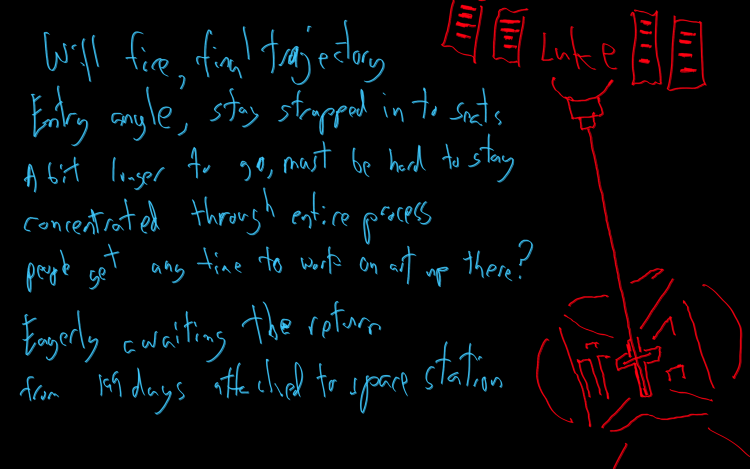 Will fire, final trajectory
Luke
Entry angle, stay strapped in to seats
A bit longer to go, must be hard to stay
concentrated through entire process
people get any time to work on art up there?
Eagerly awaiting the return
from 199 days attached to space station